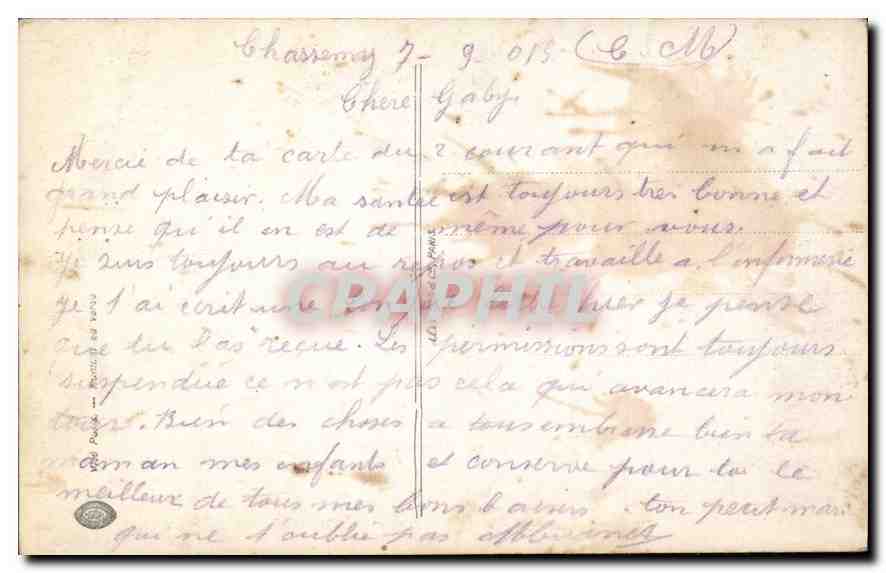 Chassemy 7 - 9 - 015 (C. M)
Chere Gaby
Mercie de ta carte du 2 courant qui m a fait
grand plaisir. Ma santée est toujours tres bonne et
pense qu'il en est de même pour vous.
Je suis toujours au repos et travaille a l'infirmerie
je t'ai écrit une hier je pense
que tu l'as reçue. Les permissions sont toujours
suspendue ce n est pas cela qui avancera mon
tour. Bien des choses a tous embrasse bien ta
maman mes enfants et conserve pour toi le
meilleur de tous mes bons baisers. ton petit mari
qui ne t'oublie pas
CPAPHIL
PARIS